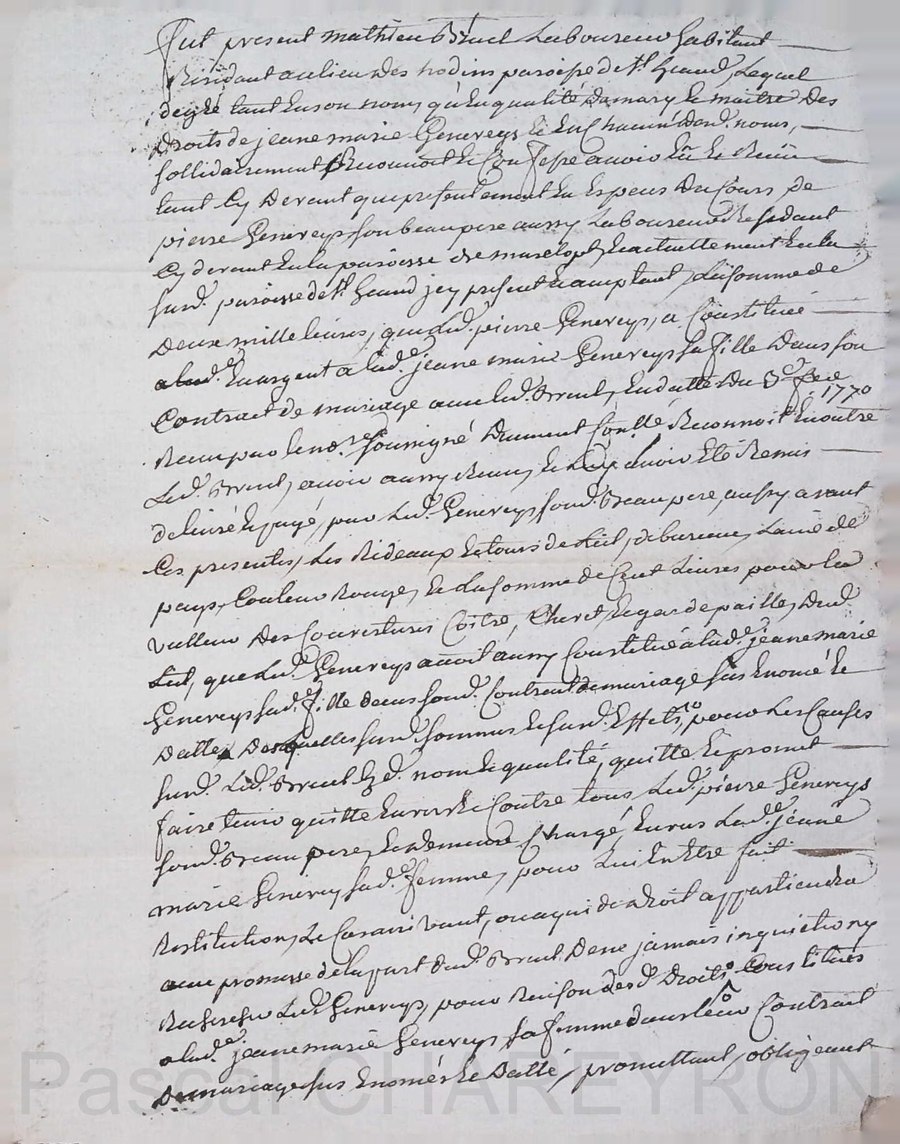 Fut present mathieu Bruel Laboureur habitant
Residant au lieu des nodins paroisse de St. Grand, Lequel
de gré tant en son nom, qu'en qualité de mary et maitre des
droits de jeane marie Genereys et en chacun desd. noms,
sollidairement Reconnoit et Confesse avoir Eu et Reçu
tant Cy devant que presentement en Especes du Cours de
pierre Genereys son beau pere aussy Laboureur Residant
Cy devant en la paroisse de et actuellement en la
surd. paroisse de St. Grand jcy present acceptant, La somme de
deux mille livres, que Led. pierre Genereys, a Constitué
en argent a lad.e jeane marie Genereys sa fille dans son
Contract de mariage avec led. Bruel, en datte du 1770
Reçu par le no.re soussigné duement Reconnoit en outre
Led. Bruel, avoir aussy Reçu, et Luy avoir Eté Remis
delivré et payé, par Led. Genereys son d. Beau pere, aussy avant
Ces presentes, Les Rideaux et tours de Lit, de bureau, Laine de
pays, Couleur Rouge, et La somme de Cent Livres pour la
valleur des Couvertures Coitre, Chevet, et de paille, dud.
Lit, que Led. Genereys avoit aussy Constitué a lad.e jeane marie
Genereys sad.e fille dans son d. Contract de mariage sus Enomé et
datté desquelles surd. sommes et surd. Effets, pour Les Causes
surd. Led. Bruel nom et qualité, quitte et promet
faire tenir quitte Envers et Contre tous Led. pierre Genereys
son d. Beau pere, et demeure Chargé, Envers Lad.e jeane
marie Genereys sad.e femme, pour Lui En Etre fait
Restitution, Le Cas arrivant, ou a qui de droit appartiendra
avec promesse de la part dud. Bruel de ne jamais inquietter ny
Rechercher Led. Genereys, pour Raison desd. Droits Constitués
a lad.e jeane marie Genereys sa femme dans leur Contract
de mariage sus Enomé et Datté, promettant, obligeant
Pascal CHAREYRON